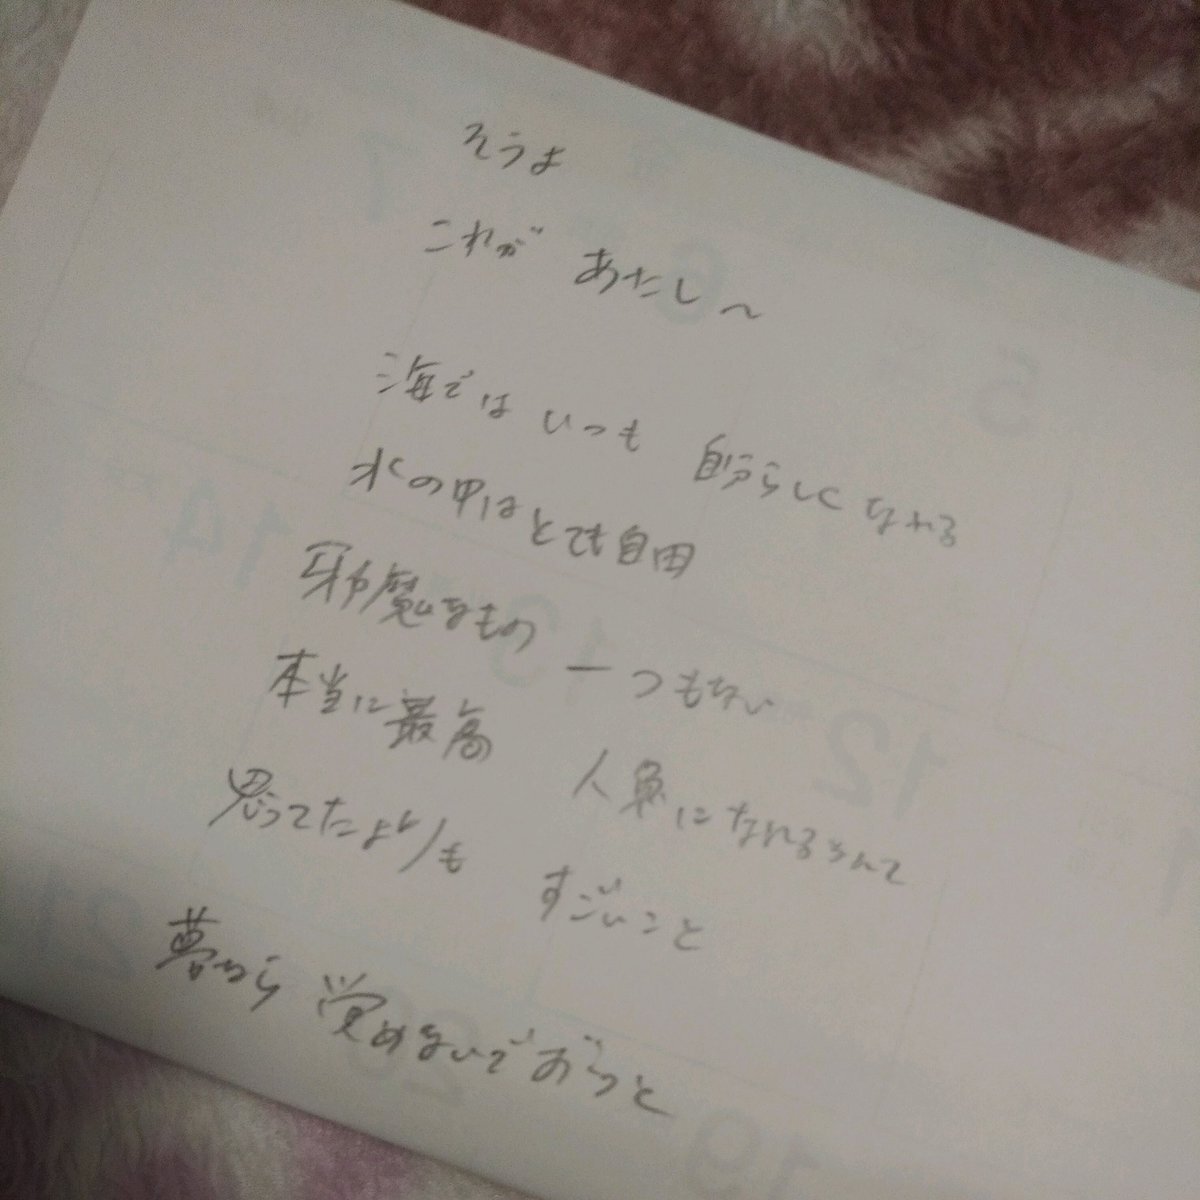 そうよ
これが あたし〜
海では いつも 自分らしくなれる
水の中はとても自由
邪魔なもの 一つもない
本当に最高 人魚になれるなんて
思ってたよりも すごいこと
夢から 覚めないでずっと
5
6
7
12
13
14
19
20
21